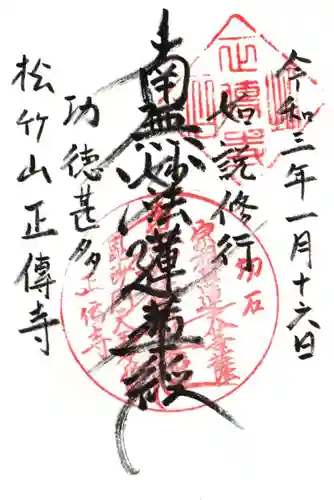 令和三年一月十六日
如説修行
南無妙法蓮華経
功徳甚多
松竹山正傳寺